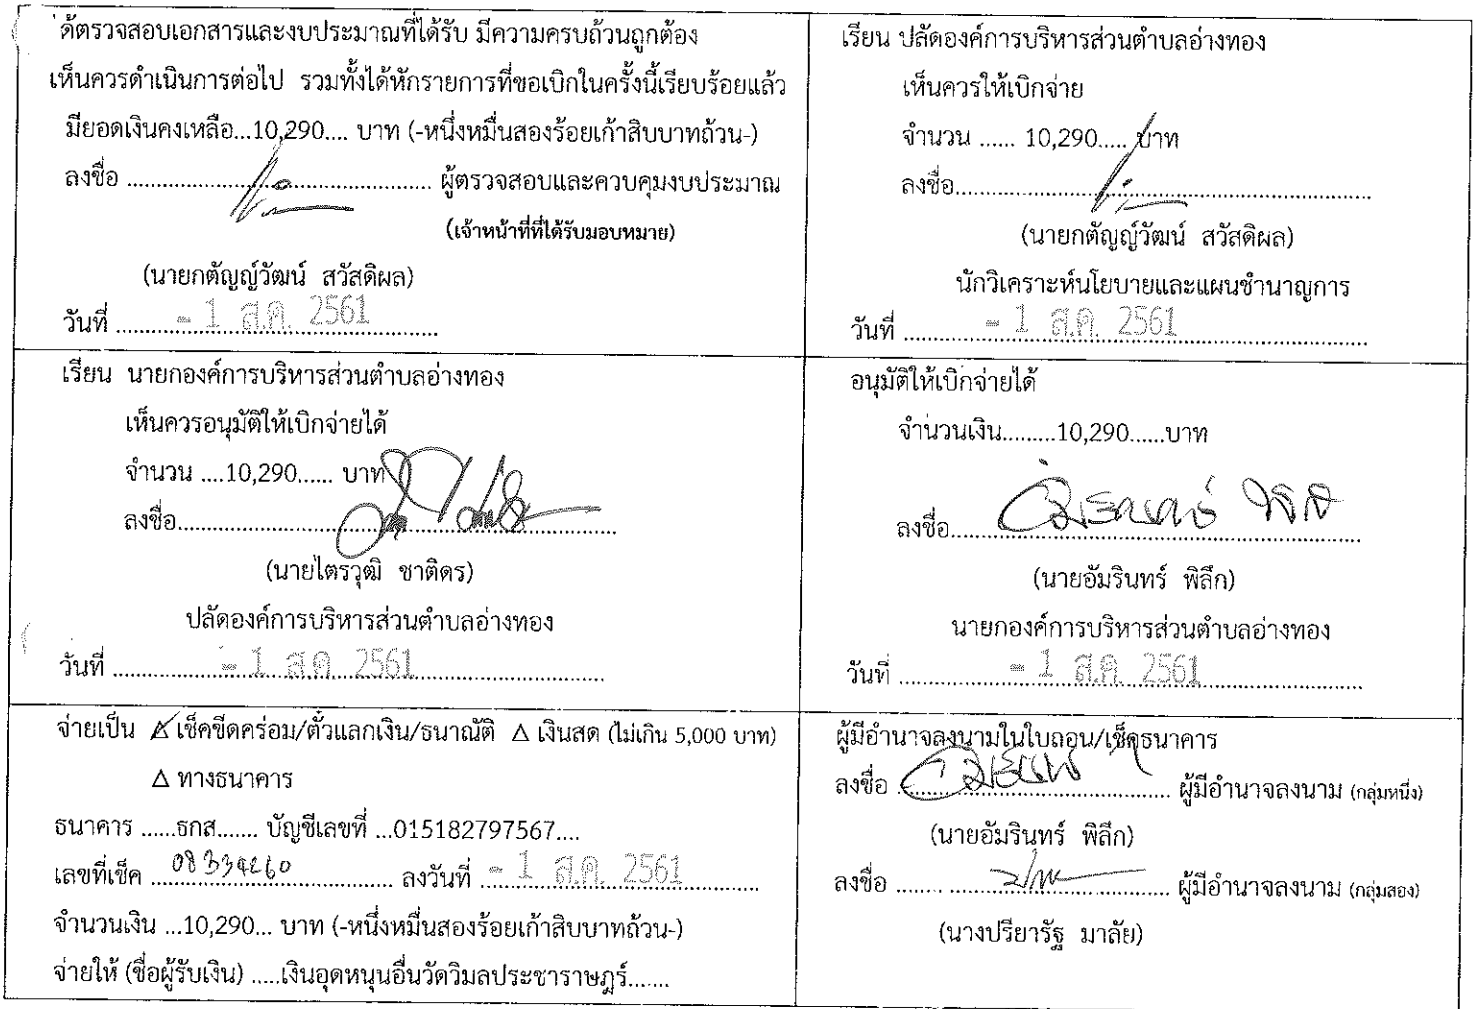 ด้ตรวจสอบเอกสารและงบประมาณที่ได้รับ มีความครบถ้วนถูกต้อง
เห็นควรดำเนินการต่อไป รวมทั้งได้หักรายการที่ขอเบิกในครั้งนี้เรียบร้อยแล้ว
มียอดเงินคงเหลือ...10,290.... บาท (-หนึ่งหมื่นสองร้อยเก้าสิบบาทถ้วน-)
ลงชื่อ ........................................ ผู้ตรวจสอบและควบคุมงบประมาณ
(เจ้าหน้าที่ที่ได้รับมอบหมาย)
(นายกตัญญ์วัฒน์ สวัสดิผล)
วันที่ - 1 ส.ค. 2561
เรียน ปลัดองค์การบริหารส่วนตำบลอ่างทอง
เห็นควรให้เบิกจ่าย
จำนวน ...... 10,290..... บาท
ลงชื่อ........................................
(นายกตัญญ์วัฒน์ สวัสดิผล)
นักวิเคราะห์นโยบายและแผนชำนาญการ
วันที่ - 1 ส.ค. 2561
เรียน นายกองค์การบริหารส่วนตำบลอ่างทอง
เห็นควรอนุมัติให้เบิกจ่ายได้
จำนวน ....10,290...... บาท
ลงชื่อ........................................
(นายไตรวุฒิ ชาติดร)
ปลัดองค์การบริหารส่วนตำบลอ่างทอง
วันที่ - 1 ส.ค. 2561
อนุมัติให้เบิกจ่ายได้
จำนวนเงิน.........10,290......บาท
ลงชื่อ........................................
(นายอัมรินทร์ พิลึก)
นายกองค์การบริหารส่วนตำบลอ่างทอง
วันที่ - 1 ส.ค. 2561
จ่ายเป็น Δ เช็คขีดคร่อม/ตั๋วแลกเงิน/ธนาณัติ Δ เงินสด (ไม่เกิน 5,000 บาท)
Δ ทางธนาคาร
ธนาคาร ......ธกส....... บัญชีเลขที่ ...015182797567....
เลขที่เช็ค ........................ ลงวันที่ - 1 ส.ค. 2561
จำนวนเงิน ...10,290... บาท (-หนึ่งหมื่นสองร้อยเก้าสิบบาทถ้วน-)
จ่ายให้ (ชื่อผู้รับเงิน) .....เงินอุดหนุนอื่นวัดวิมลประชาราษฎร์.......
ผู้มีอำนาจลงนามในใบถอน/เช็คธนาคาร
ลงชื่อ ........................................ ผู้มีอำนาจลงนาม (กลุ่มหนึ่ง)
(นายอัมรินทร์ พิลึก)
ลงชื่อ ........................................ ผู้มีอำนาจลงนาม (กลุ่มสอง)
(นางปรียารัฐ มาลัย)